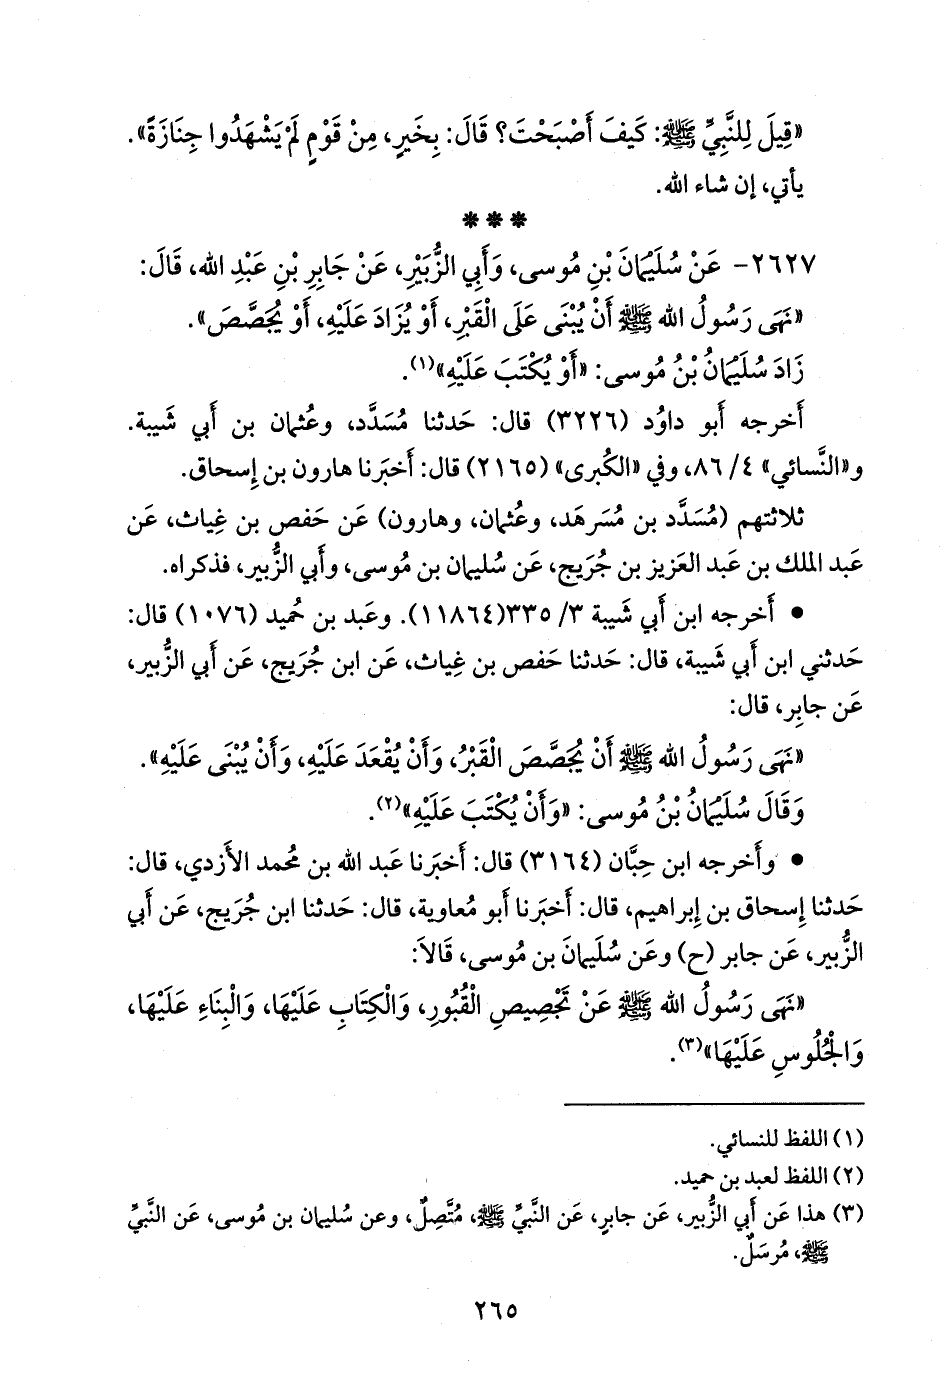 «قِيلَ لِلنَّبِيِّ ﷺ: كَيفَ أَصْبَحْتَ؟ قَالَ: بِخَيرٍ، مِنْ قَوْمٍ لَمْ يَشْهَدُوا جِنَازَةً».
يأتي، إن شاء الله.
***
٢٦٢٧- عَنْ سُلَيْمَانَ بْنِ مُوسى، وَأَبِي الزُّبَيْرِ، عَنْ جَابِرِ بْنِ عَبْدِ الله، قَالَ:
«نَهَى رَسُولُ الله ﷺ أَنْ يُبْنَى عَلَى الْقَبْرِ، أَوْ يُزَادَ عَلَيْهِ، أَوْ يُجَصَّصَ».
زَادَ سُلَيْمَانُ بْنُ مُوسى: «أَوْ يُكْتَبَ عَلَيْهِ»(١).
أخرجه أبو داوُد (٣٢٢٦) قال: حَدثنا مُسَدَّد، وعُثمان بن أبي شَيبة.
و«النَّسائي» ٤/ ٨٦، وفي «الكُبرى» (٢١٦٥) قال: أخبَرنا هارون بن إِسحاق.
ثلاثتهم (مُسَدَّد بن مُسَرهَد، وعُثمان، وهارون) عَن حَفص بن غِياث، عَن
عَبد الملك بن عَبد العزيز بن جُرَيج، عَن سُليمان بن مُوسى، وأبي الزُّبير، فذكراه.
• أخرجه ابن أبي شَيبة ٣/ ٣٣٥(١١٨٦٤). وعَبد بن حُميد (١٠٧٦) قال:
حَدثني ابن أبي شَيبة، قال: حَدثنا حَفص بن غِياث، عَن ابن جُرَيج، عَن أبي الزُّبير،
عَن جابِر، قال:
«نَهَى رَسُولُ الله ﷺ أَنْ يُجَصَّصَ الْقَبْرُ، وَأَنْ يُقْعَدَ عَلَيْهِ، وَأَنْ يُبْنَى عَلَيْهِ».
وَقَالَ سُلَيْمَانُ بْنُ مُوسى: «وَأَنْ يُكْتَبَ عَلَيْهِ»(٢).
• وأخرجه ابن حِبَّان (٣١٦٤) قال: أخبَرنا عَبد الله بن مُحمد الأزدي، قال:
حَدثنا إِسحاق بن إِبراهيم، قال: أخبَرنا أبو مُعاوية، قال: حَدثنا ابن جُرَيج، عَن أبي
الزُّبير، عَن جابر (ح) وعَن سُلَيمانَ بن مُوسى، قَالاَ:
«نَهَى رَسُولُ الله ﷺ عَنْ تَجْصِيصِ الْقُبُورِ، وَالْكِتَابِ عَلَيْهَا، وَالْبِنَاءِ عَلَيْهَا،
وَالْجُلُوسِ عَلَيْهَا»(٣).
(١) اللفظ للنسائي.
(٢) اللفظ لعبد بن حميد.
(٣) هذا عَن أبي الزُّبير، عَن جابرٍ، عَن النَّبيِّ ﷺ، مُتَّصِلٌ، وعن سُليمان بن مُوسى، عَن النَّبيِّ
ﷺ، مُرسَلٌ.
٢٦٥